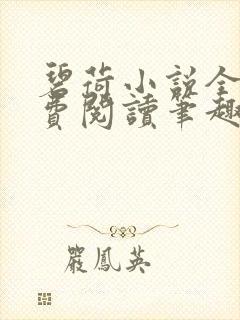 碧荷小説全
費閱讀筆趣
嚴鳳英